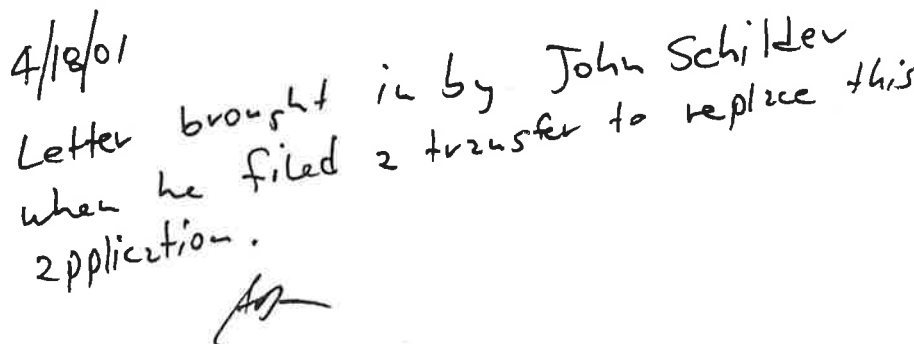 4/18/01
Letter brought in by John Schilder
when he filed a transfer to replace this
application.